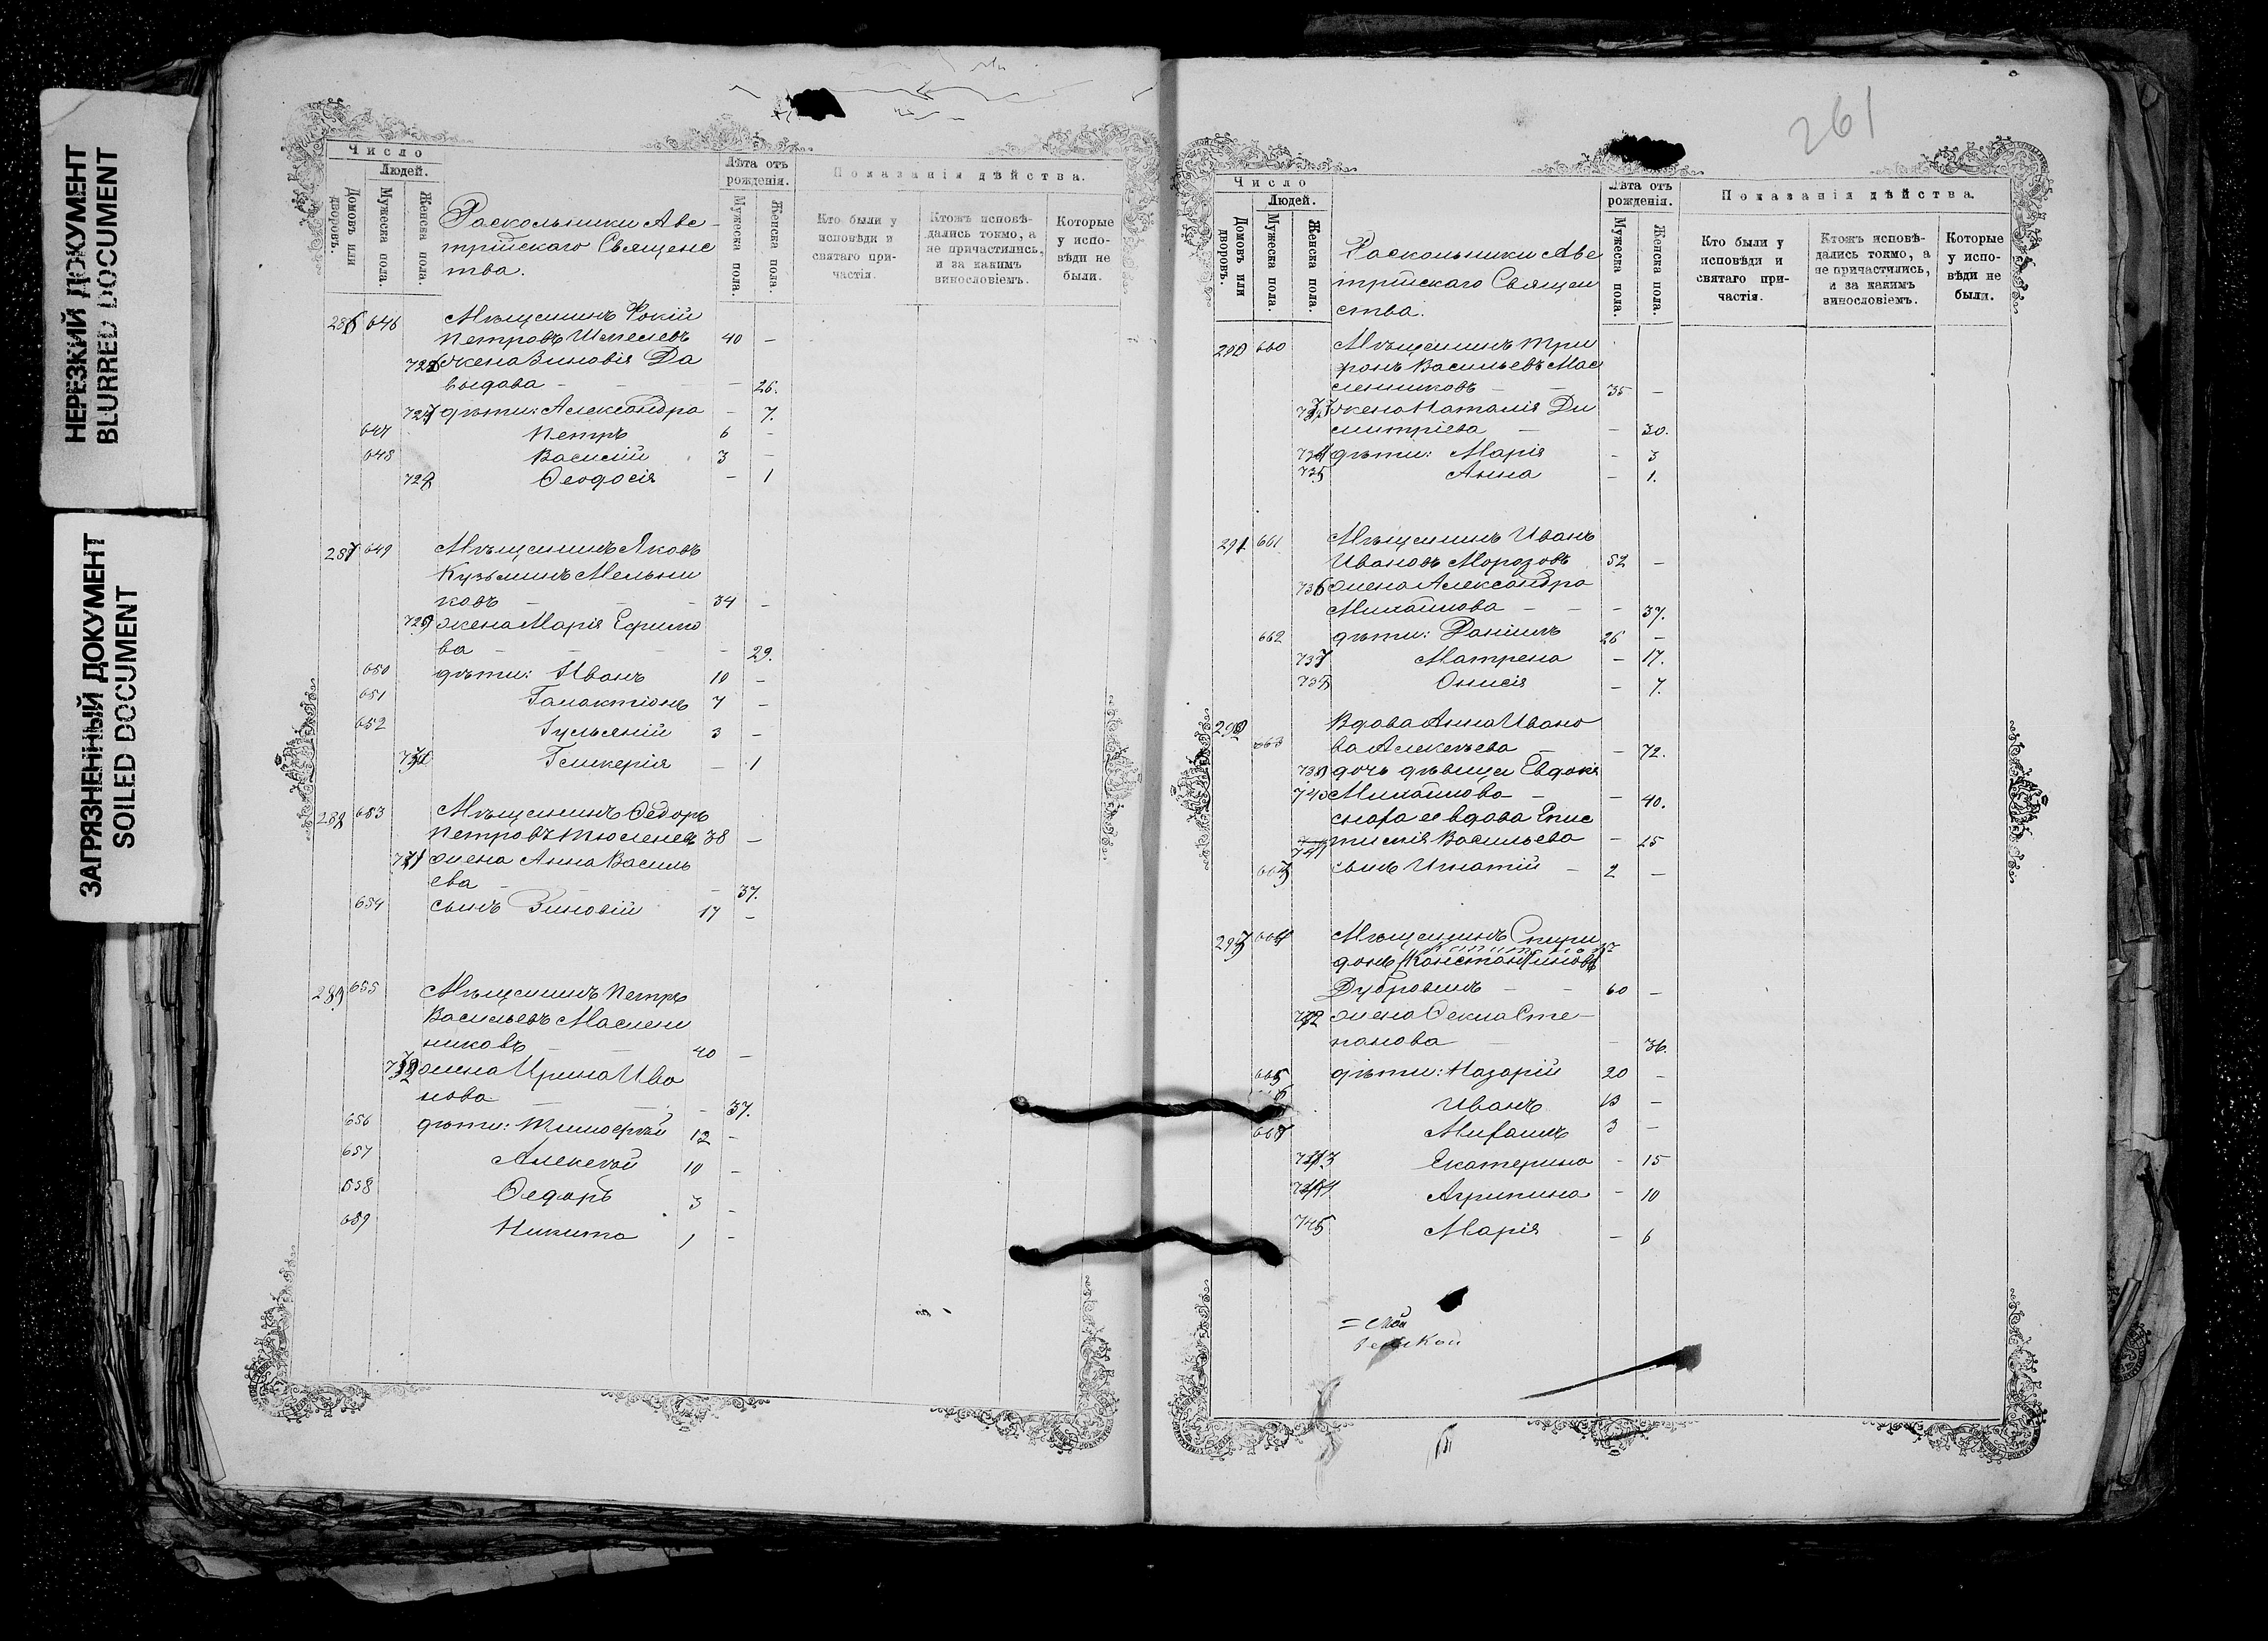 НЕРЕЗКИЙ ДОКУМЕНТ
BLURRED DOCUMENT
ЗАГРЯЗНЕННЫЙ ДОКУМЕНТ
SOILED DOCUMENT
Число
Людей.
Домовъ или дворовъ.
Мужеска пола.
Женска пола.
Раскольники Авс-
трійскаго Священс
тва.
Лѣта отъ рожденія.
Мужеска пола.
Женска пола.
Показанія дѣйства.
Кто были у исповѣди и святаго причастія.
Ктожъ исповѣдались токмо, а не причастились, и за какимъ винословіемъ.
Которые у исповѣди не были.
286 646 Мѣщанинъ Фокій
Петровъ Шмелевъ 40 -
726 жена Зиновія Да
выдова - - 26.
727 дѣти: Александра - 7.
647 Петръ 6 -
648 Василій 3 -
728 Ѳеодосія - 1
287 649 Мѣщанинъ Яковъ
Кузьминъ Мельни
ковъ - - 34 -
729 жена Марія Ефимо
ва - - 29.
650 дѣти: Иванъ 10 -
651 Галактіонъ 7 -
652 Іульяній 3 -
730 Гликерія - 1
288 653 Мѣщанинъ Ѳедоръ
Петровъ Тюленевъ 38 -
731 жена Анна Василь
ева - - 37.
654 сынъ Зиновій 17 -
289 655 Мѣщанинъ Петръ
Васильевъ Маслени
никовъ - 40 -
732 жена Ирина Ива
нова - - 37.
656 дѣти: Тимофей 12 -
657 Алексѣй 10 -
658 Ѳедоръ 3 -
659 Никита 1 -
261
Число
Людей.
Домовъ или дворовъ.
Мужеска пола.
Женска пола.
Раскольники Авс
трійскаго Священ
ства.
Лѣта отъ рожденія.
Мужеска пола.
Женска пола.
Показанія дѣйства.
Кто были у исповѣди и святаго причастія.
Ктожъ исповѣдались токмо, а не причастились, и за какимъ винословіемъ.
Которые у исповѣди не были.
290 660 Мѣщанинъ Три
фонъ Васильевъ Мас
ленниковъ - 35 -
733 жена Наталія Ди
митріева - - 30.
734 дѣти: Марія - 3
735 Анна - 1.
291 661 Мѣщанинъ Иванъ
Ивановъ Морозовъ 52 -
736 жена Александра
Михайлова - - 37.
662 дѣти: Даніилъ 26 -
737 Матрена - 17.
738 Онисія - 7.
292 Вдова Анна Ивано
ва Алексѣева - - 72.
739 дочь дѣвица Евдокія
740 Михайлова - - 40.
сноха ея вдова Епис
741 тимія Васильева - 25
663 сынъ Игнатій - 2 -
293 664 Мѣщанинъ Спири
донъ Константиновъ
Дубровинъ - - 60 -
742 жена Ѳекла Сте-
панова - - 36.
665 дѣти: Назарій 20 -
Иванъ 13 -
667 Михаилъ 3 -
743 Екатерина - 15
744 Агрипина - 10
745 Марія - 6